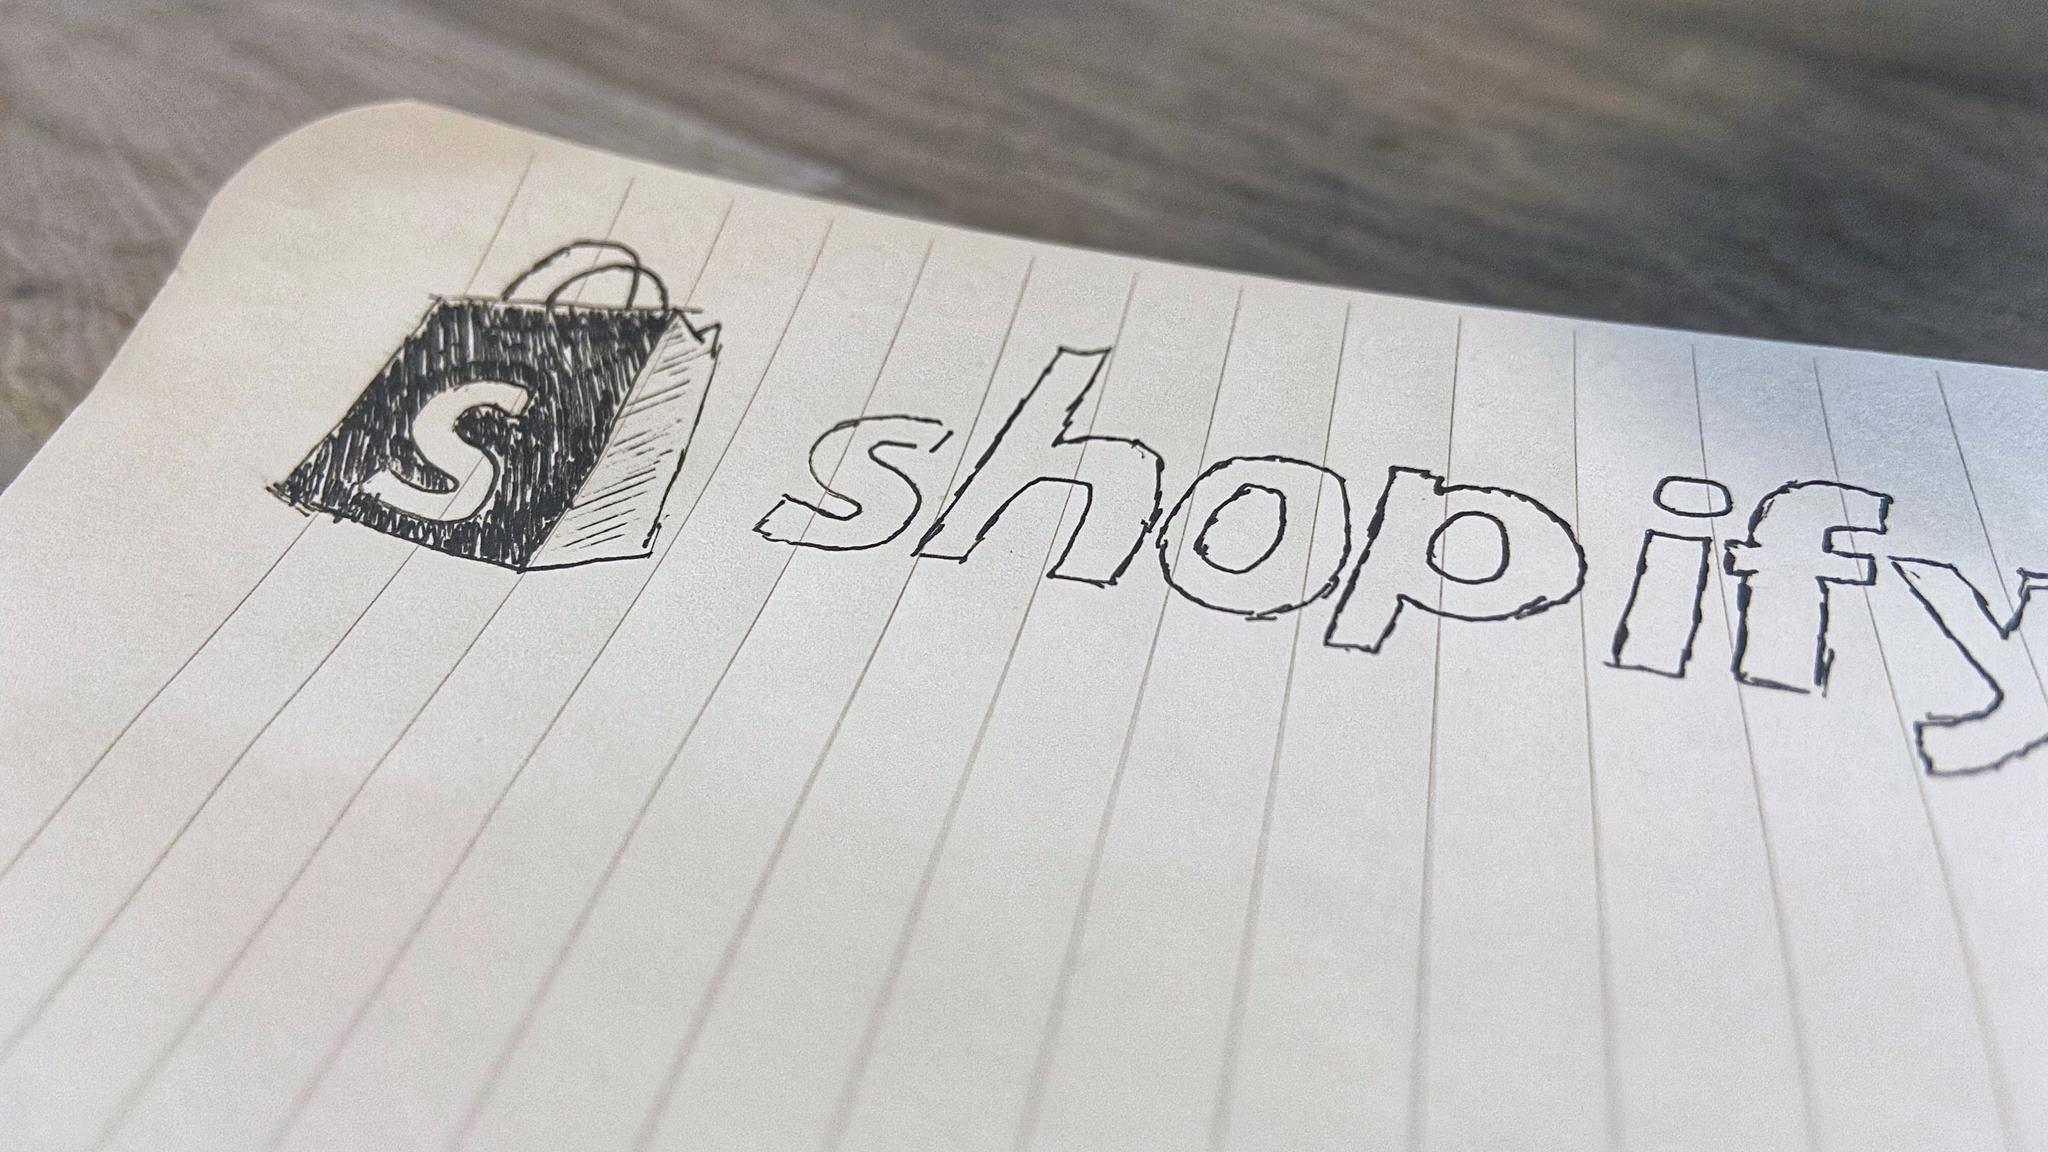 S shopify